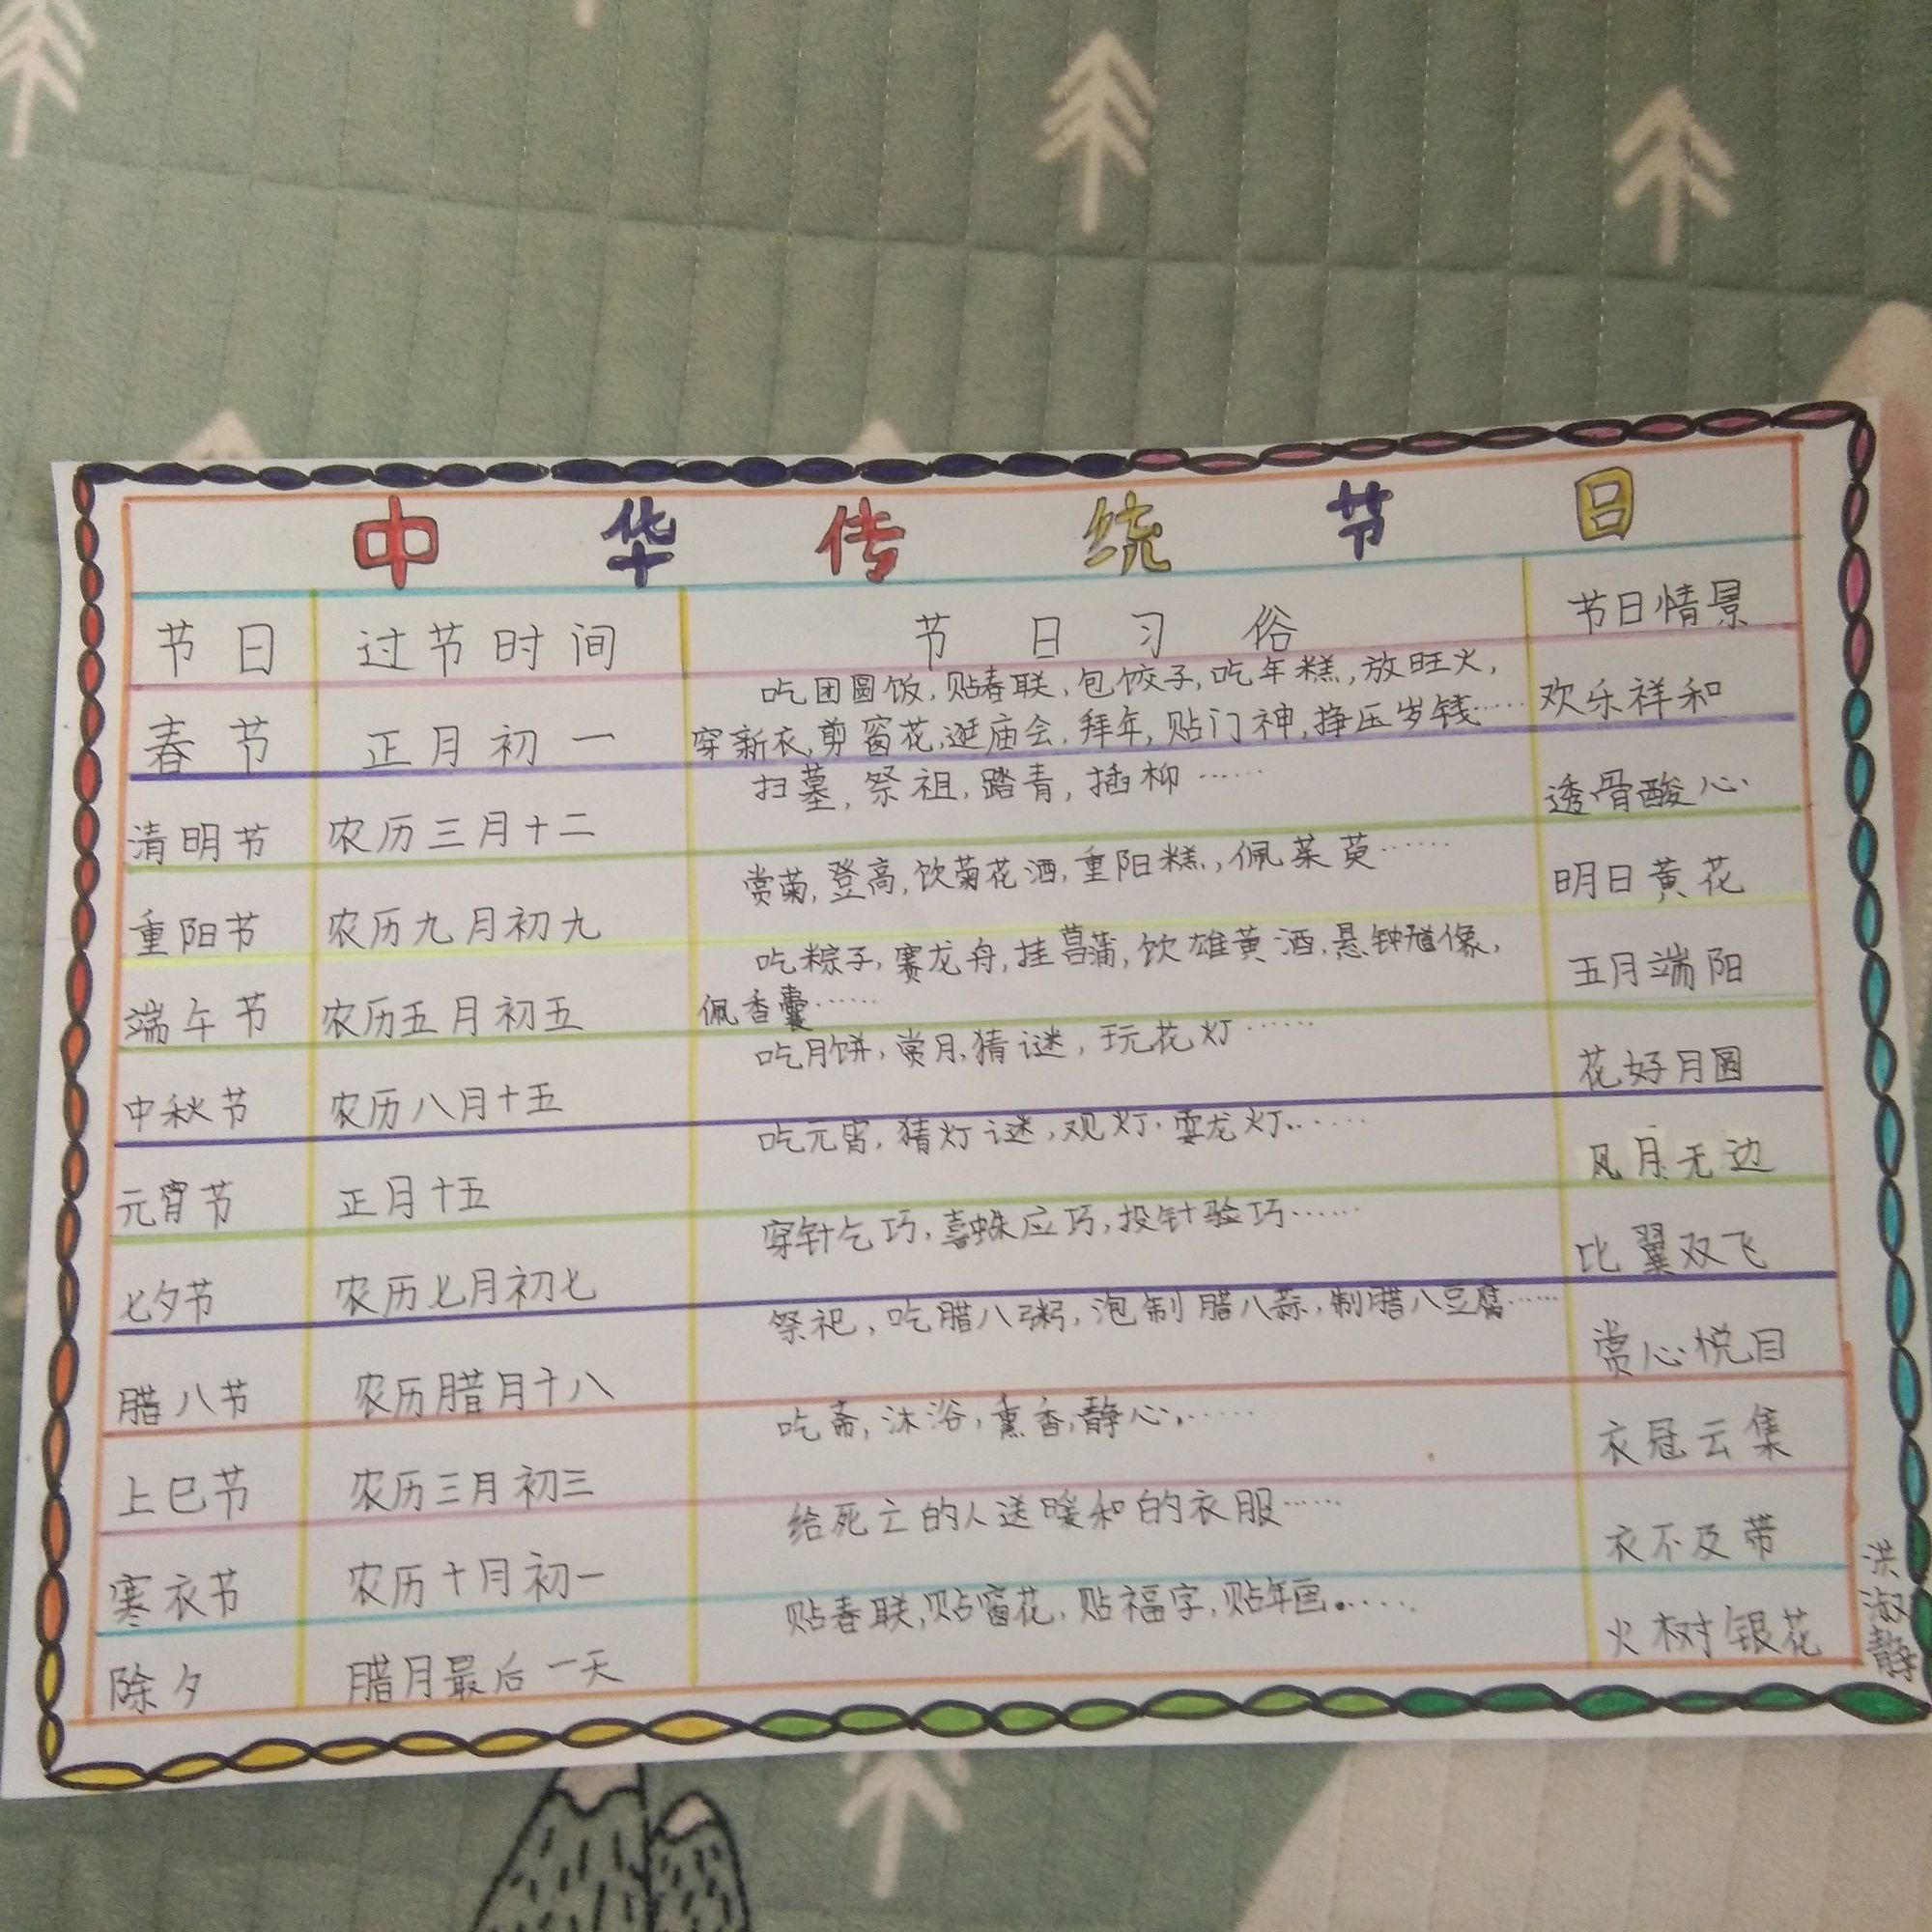 中华传统节日
节日 过节时间 节日习俗 节日情景
吃团圆饭,贴春联,包饺子,吃年糕,放旺火,
春节 正月初一 穿新衣,剪窗花,逛庙会,拜年,贴门神,挣压岁钱…… 欢乐祥和
扫墓,祭祖,踏青,插柳……
清明节 农历三月十二 透骨酸心
赏菊,登高,饮菊花酒,重阳糕,佩茱萸……
重阳节 农历九月初九 明日黄花
吃粽子,赛龙舟,挂菖蒲,饮雄黄酒,悬钟馗像,
端午节 农历五月初五 佩香囊…… 五月端阳
吃月饼,赏月,猜谜,玩花灯……
中秋节 农历八月十五 花好月圆
吃元宵,猜灯谜,观灯,耍龙灯……
元宵节 正月十五 风月无边
穿针乞巧,喜蛛应巧,投针验巧……
七夕节 农历七月初七 比翼双飞
祭祀,吃腊八粥,泡制腊八蒜,制腊八豆腐……
腊八节 农历腊月十八 赏心悦目
吃斋,沐浴,熏香,静心,……
上巳节 农历三月初三 衣冠云集
给死亡的人送暖和的衣服……
寒衣节 农历十月初一 衣不及带
贴春联,贴窗花,贴福字,贴年画……
除夕 腊月最后一天 火树银花
洪淑静